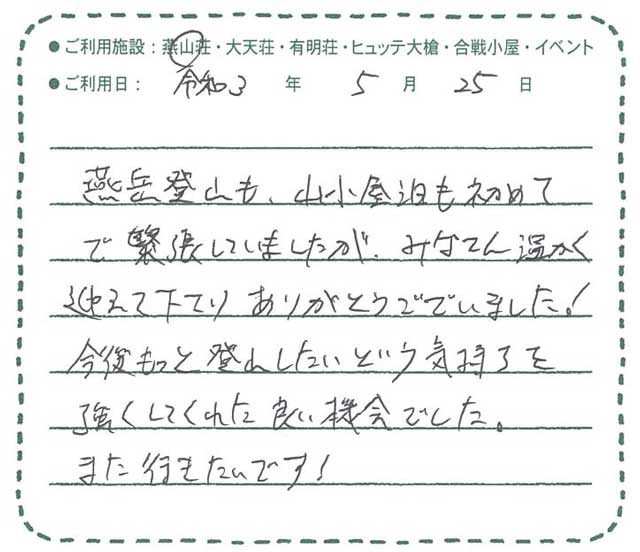 ●ご利用施設：燕山荘・大天荘・有明荘・ヒュッテ大槍・合戦小屋・イベント
●ご利用日： 令和3 年 5 月 25 日
燕岳登山も、山小屋泊も初めて
で緊張していましたが、みなさん温かく
迎えて下さり ありがとうございました！
今後もっと登山したいという気持ちを
強くしてくれた良い機会でした。
また行きたいです！